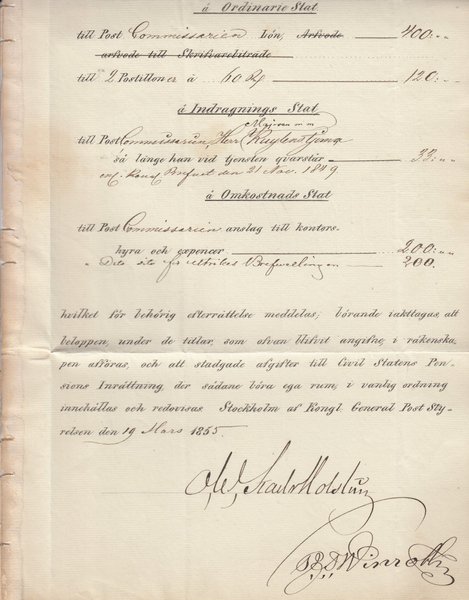 á Ordinarie Stat
till Post Commissarien Lön, Arfvode 400:„ „
arfvode till Skrifvarebiträde
till 2 Postilloner á 60 Rd 120:„ „
á Indragnings Stat
till Post Commissarien, Herr Majoren m m
så länge han vid tjensten qvarstår 33:„ „
enl. Kongl Brefvet den 21 Nov. 1849
á Omkostnads Stat
till Post Commissarien anslag till kontors-
hyra och expencer 200:„ „
„ Dito dito för 200.
hvilket för behörig efterrättelse meddelas; börande iakttagas, att
beloppen, under de titlar, som ofvan blifvit angifne, i räkenska-
pen afföras, och att stadgade afgifter till Civil Statens Pen-
sions Inrättning, der sådane böra ega rum, i vanlig ordning
innehållas och redovisas. Stockholm af Kongl. General Post Sty-
relsen den 19 Mars 1855.
Winroth